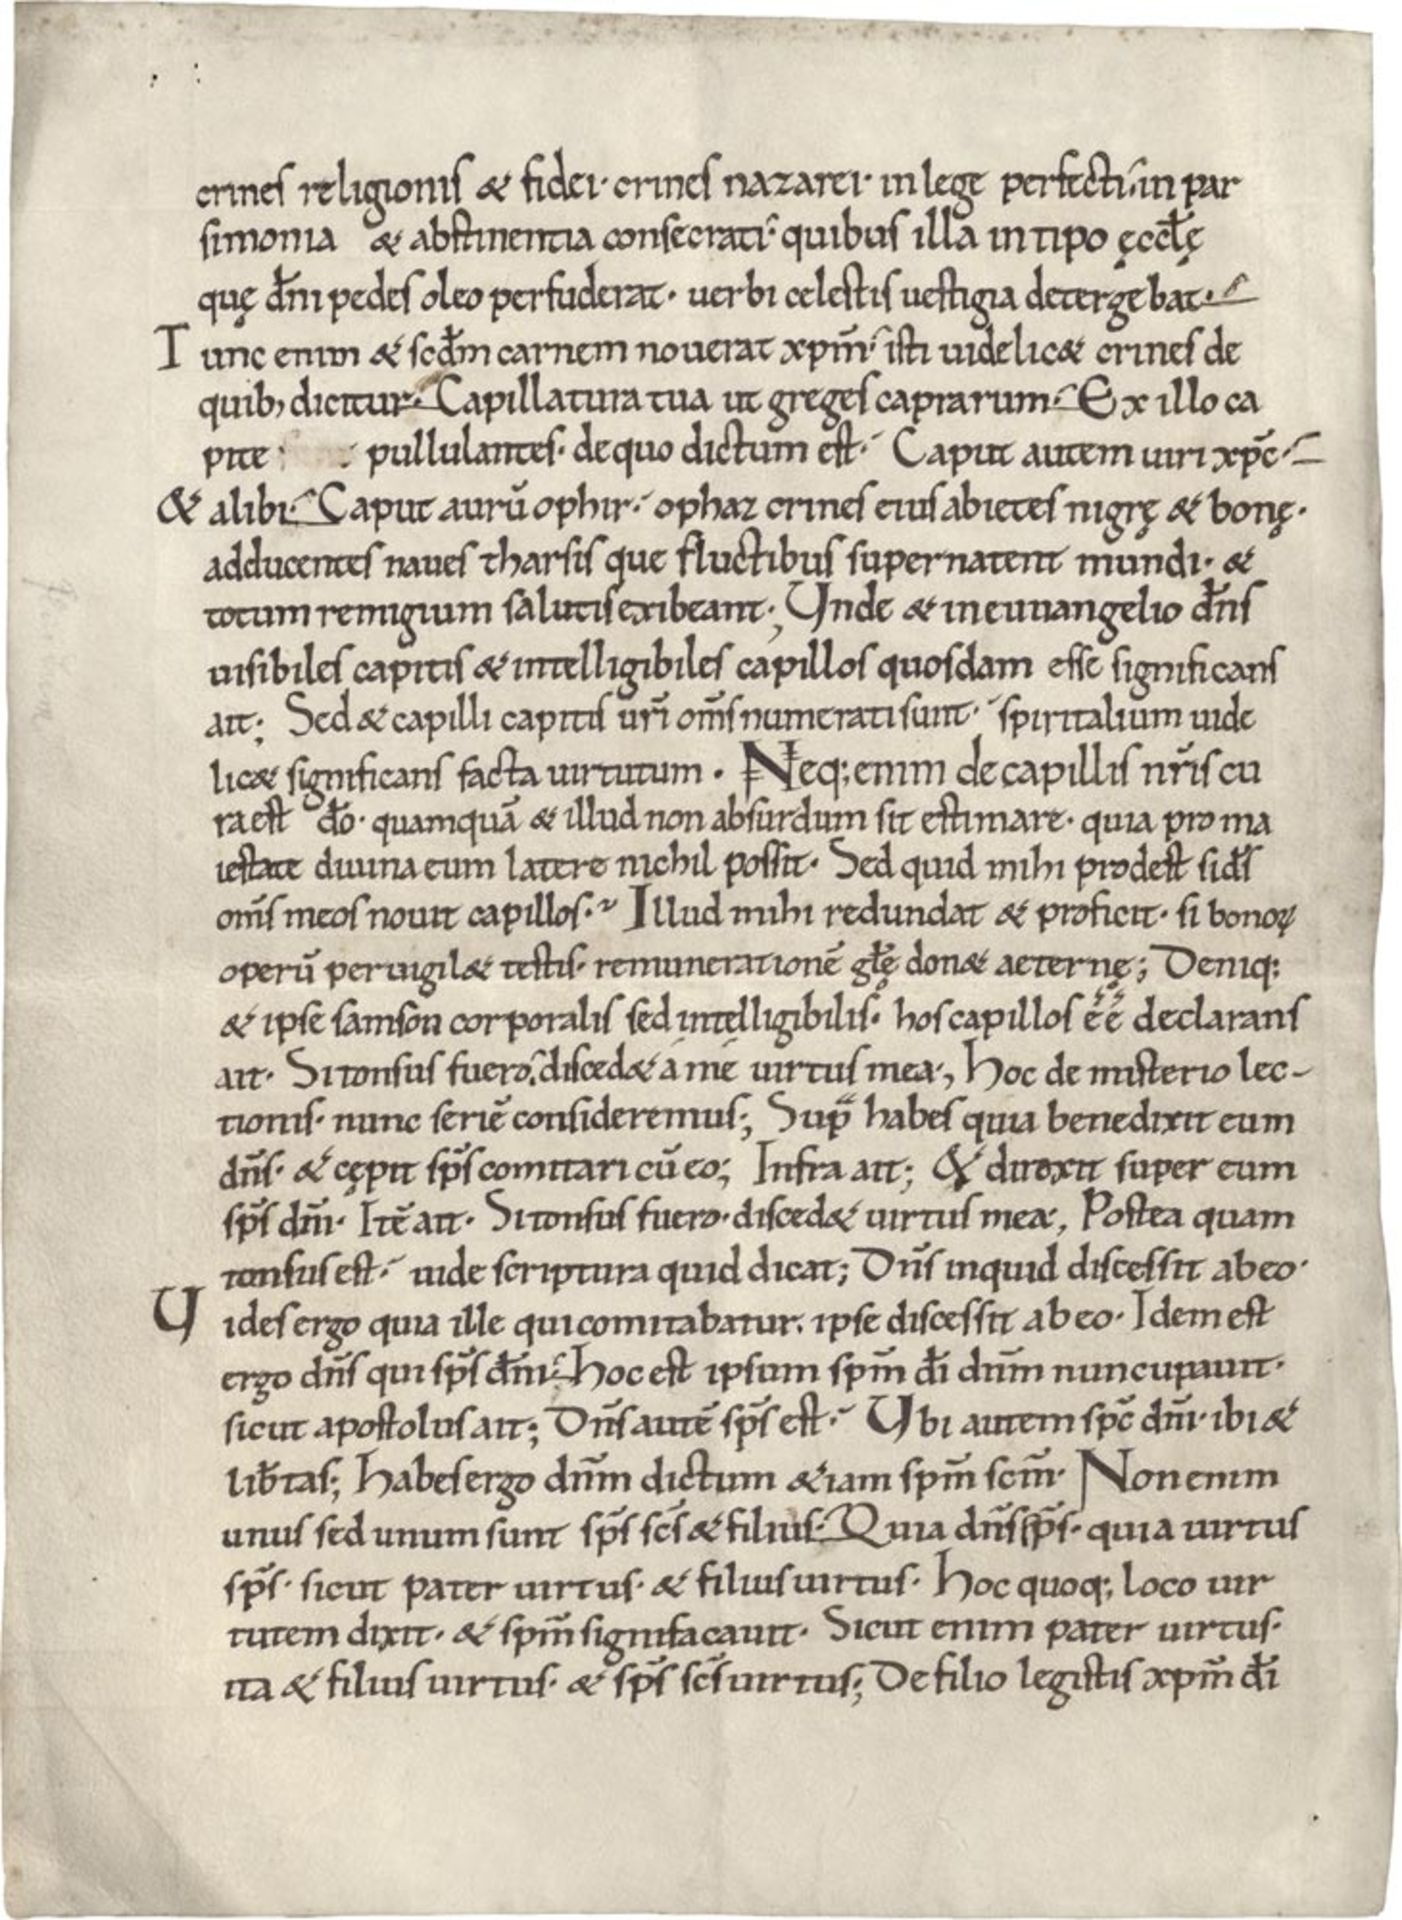 crines religionis & fidei· crines nazarei· in lege perfecti· in par
simonia & abstinentia consecrati· quibus illa in tipo ęccl̄ę
quę dn̄i pedes oleo perfuderat· uerbi celestis uestigia detergebat·
Tunc enim & scd̄m carnem nouerat xpm̄· isti uidelic& crines de
quib; dicitur· Capillatura tua ut greges caprarum· Ex illo ca
pite pullulantes· de quo dictum est· Caput autem uiri xpc̄·
& alibi· Caput aurū ophir· ophaz crines eius abietes nigrę & bonę·
adducentes naues tharsis que fluctibus supernatent mundi· &
totum remigium salutis exibeant·, Unde & in euuangelio dn̄s
uisibiles capitis & intelligibiles capillos quosdam esse significans
ait; Sed & capilli capitis ur̄i om̄s numerati sunt· spiritalium uide
lic& significans facta uirtutum· Neq; enim de capillis nr̄is cu
ra est dō· quamquā & illud non absurdum sit estimare· quia pro ma
iestate diuina eum latere nichil possit· Sed quid mihi prodest si ds̄
om̄s meos nouit capillos· Illud mihi redundat & proficit· si bonoꝝ
operū peruigil& testis· remunerationē gl̄ę don& aeternę; Deniq;
& ipse samson corporalis sed intelligibilis· hos capillos ēē declarans
ait· Si tonsus fuero· disced& á me uirtus mea·, Hoc de misterio lec-
tionis· nunc seriē consideremus·, Sup̄ habes quia benedixit eum
dn̄s· & cępit sps̄ comitari cū eo; Infra ait; & direxit super eum
sps̄ dn̄i· Itē ait· Si tonsus fuero· disced& uirtus mea, Postea quam
tonsus est· uide scriptura quid dicat; Dn̄s inquid discessit ab eo·
Uides ergo quia ille qui comitabatur· ipse discessit ab eo· Idem est
ergo dn̄s qui sps̄ dn̄i· Hoc est ipsum spm̄ dī dnm̄ nuncupauit·
sicut apostolus ait; Dn̄s autē sps̄ est· Ubi autem spc̄ dn̄i· ibi &
lib̄tas; Habes ergo dnm̄ dictum &iam spm̄ scm̄· Non enim
unus sed unum sunt sps̄ scs̄ & filius· Quia dn̄s sps̄· quia uirtus
sps̄· sicut pater uirtus· & filius uirtus· Hoc quoq; loco uir
tutem dixit· & spm̄ signifacauit· Sicut enim pater uirtus·
ita & filius uirtus· & sps̄ scs̄ uirtus; De filio legistis xpm̄ dī